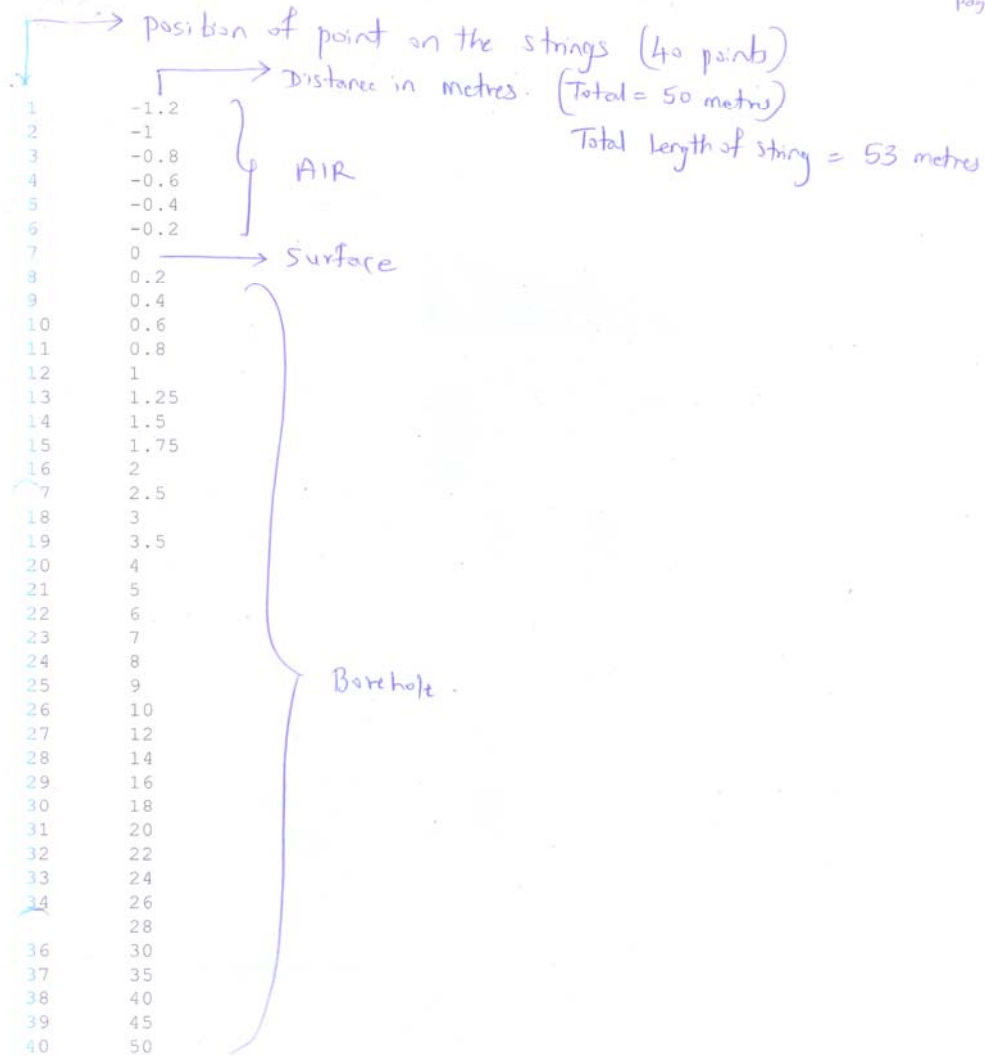 pag
Position of point on the strings (40 points)
Distance in metres. (Total = 50 metres)
Total Length of string = 53 metres
1 -1.2
2 -1
3 -0.8
4 -0.6 AIR
5 -0.4
6 -0.2
7 0 Surface
8 0.2
9 0.4
10 0.6
11 0.8
12 1
13 1.25
14 1.5
15 1.75
16 2
7 2.5
18 3
19 3.5
20 4
21 5
22 6
23 7
24 8
25 9 Borehole.
26 10
27 12
28 14
29 16
30 18
31 20
32 22
33 24
34 26
28
36 30
37 35
38 40
39 45
40 50